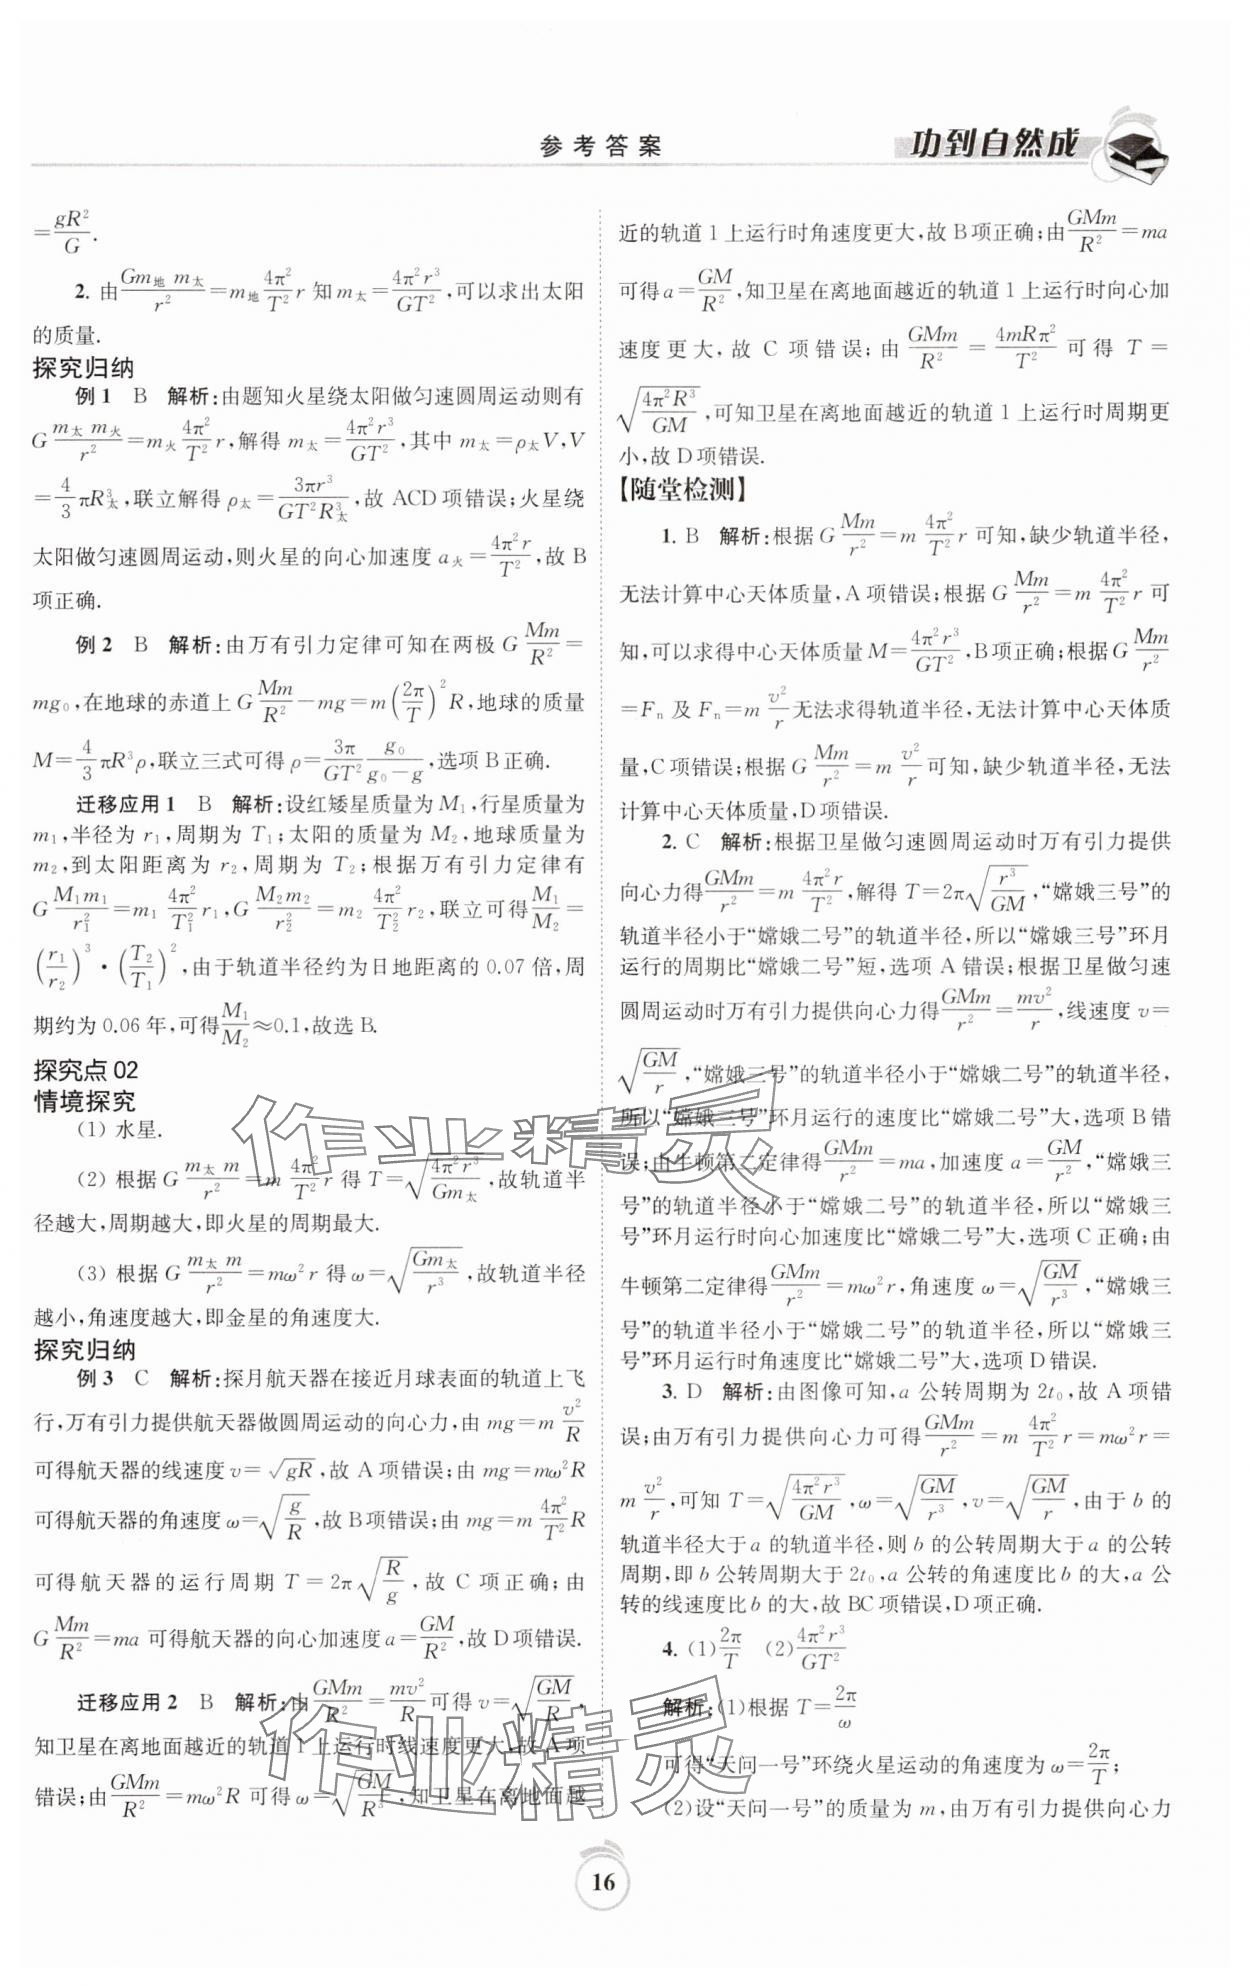 参考答案
功到自然成
=gR²/G.
2. 由Gm地 m太/r²=m地4π²/T² r 知m太=4π²r³/GT²,可以求出太阳
的质量.
探究归纳
例1 B 解析:由题知火星绕太阳做匀速圆周运动则有
G m太 m火/r²=m火4π²/T² r,解得 m太=4π²r³/GT²,其中 m太=ρ太V,V
=4/3 πR太³,联立解得 ρ太=3πr³/GT²R太³,故 ACD项错误;火星绕
太阳做匀速圆周运动,则火星的向心加速度 a火=4π²r/T²,故 B
项正确.
例2 B 解析:由万有引力定律可知在两极 G Mm/R²=
mg₀,在地球的赤道上 G Mm/R²-mg=m(2π/T)²R,地球的质量
M=4/3 πR³ρ,联立三式可得 ρ=3π/GT² g₀/g₀-g,选项 B正确.
迁移应用1 B 解析:设红矮星质量为 M₁,行星质量为
m₁,半径为 r₁,周期为 T₁;太阳的质量为 M₂,地球质量为
m₂,到太阳距离为 r₂,周期为 T₂;根据万有引力定律有
G M₁m₁/r₁²=m₁ 4π²/T₁² r₁,G M₂m₂/r₂²=m₂ 4π²/T₂² r₂,联立可得M₁/M₂=
(r₁/r₂)³·(T₂/T₁)²,由于轨道半径约为日地距离的 0.07 倍,周
期约为 0.06 年,可得M₁/M₂≈0.1,故选 B.
探究点 02
情境探究
(1) 水星.
(2) 根据 G m太 m/r²=m 4π²/T² r 得 T=√(4π²r³/Gm太),故轨道半
径越大,周期越大,即火星的周期最大.
(3) 根据 G m太 m/r²=mω²r 得 ω=√(Gm太/r³),故轨道半径
越小,角速度越大,即金星的角速度大.
探究归纳
例3 C 解析:探月航天器在接近月球表面的轨道上飞
行,万有引力提供航天器做圆周运动的向心力,由 mg=m v²/R
可得航天器的线速度 v=√gR,故 A项错误;由 mg=mω²R
可得航天器的角速度 ω=√(g/R),故 B项错误;由 mg=m 4π²/T² R
可得航天器的运行周期 T=2π√(R/g),故 C 项正确;由
G Mm/R²=ma 可得航天器的向心加速度 a=GM/R²,故 D项错误.
迁移应用2 B 解析:由GMm/R²=mv²/R可得 v=√(GM/R),
知卫星在离地面越近的轨道 1上运行时线速度更大,故 A项
错误;由GMm/R²=mω²R 可得 ω=√(GM/R³),知卫星在离地面越
近的轨道 1 上运行时角速度更大,故 B项正确;由GMm/R²=ma
可得 a=GM/R²,知卫星在离地面越近的轨道 1 上运行时向心加
速度更大,故 C 项错误;由 GMm/R² = 4mRπ²/T² 可得 T =
√(4π²R³/GM),可知卫星在离地面越近的轨道 1 上运行时周期更
小,故 D项错误.
【随堂检测】
1. B 解析:根据 G Mm/r²=m 4π²/T² r 可知,缺少轨道半径,
无法计算中心天体质量,A项错误;根据 G Mm/r²=m 4π²/T² r 可
知,可以求得中心天体质量 M=4π²r³/GT²,B项正确;根据 G Mm/r²
=Fn 及 Fn=m v²/r无法求得轨道半径,无法计算中心天体质
量,C项错误;根据 G Mm/r²=m v²/r可知,缺少轨道半径,无法
计算中心天体质量,D项错误.
2. C 解析:根据卫星做匀速圆周运动时万有引力提供
向心力得GMm/r²=m 4π²r/T²,解得 T=2π√(r³/GM),“嫦娥三号”的
轨道半径小于“嫦娥二号”的轨道半径,所以“嫦娥三号”环月
运行的周期比“嫦娥二号”短,选项 A错误;根据卫星做匀速
圆周运动时万有引力提供向心力得GMm/r²=mv²/r,线速度 v=
√(GM/r),“嫦娥三号”的轨道半径小于“嫦娥二号”的轨道半径,
所以“嫦娥三号”环月运行的速度比“嫦娥二号”大,选项 B错
误;由牛顿第二定律得GMm/r²=ma,加速度 a=GM/r²,“嫦娥三
号”的轨道半径小于“嫦娥二号”的轨道半径,所以“嫦娥三
号”环月运行时向心加速度比“嫦娥二号”大,选项 C正确;由
牛顿第二定律得GMm/r²=mω²r,角速度 ω=√(GM/r³),“嫦娥三
号”的轨道半径小于“嫦娥二号”的轨道半径,所以“嫦娥三
号”环月运行时角速度比“嫦娥二号”大,选项 D错误.
3. D 解析:由图像可知,a 公转周期为 2t₀,故 A 项错
误;由万有引力提供向心力可得GMm/r²=m 4π²/T² r=mω²r=
m v²/r,可知 T=√(4π²r³/GM),ω=√(GM/r³),v=√(GM/r),由于 b 的
轨道半径大于 a 的轨道半径,则 b 的公转周期大于 a 的公转
周期,即 b 公转周期大于 2t₀,a 公转的角速度比 b 的大,a 公
转的线速度比 b 的大,故 BC项错误,D项正确.
4. (1)2π/T (2)4π²r³/GT²
解析:(1)根据 T=2π/ω
可得“天问一号”环绕火星运动的角速度为 ω=2π/T;
(2)设“天问一号”的质量为 m,由万有引力提供向心力
16
作业精灵
作业精灵